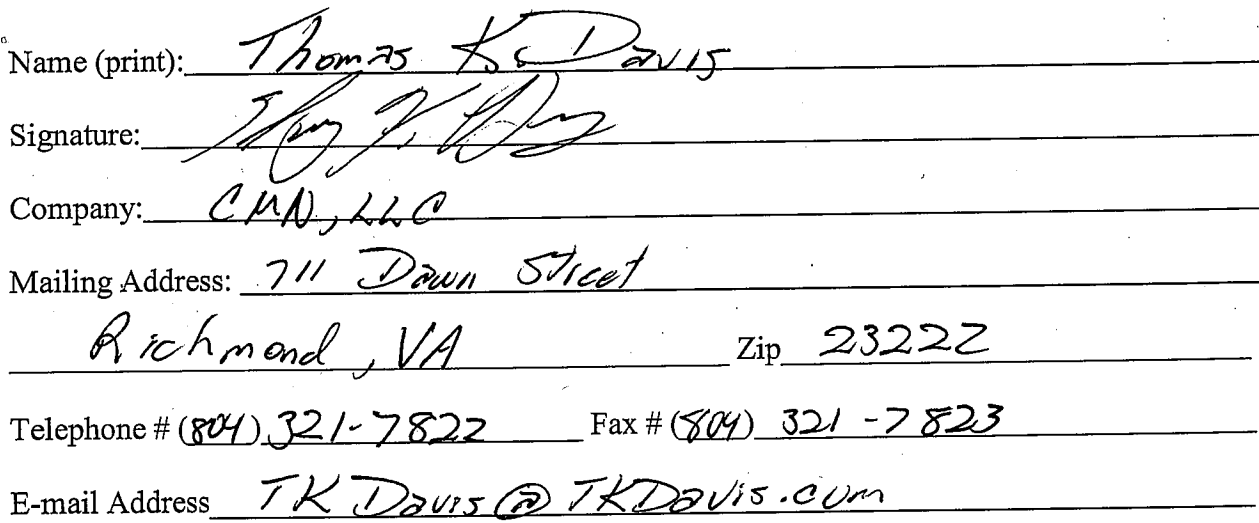 Name (print): Thomas K. Davis
Signature:
Company: CMN, LLC
Mailing Address: 711 Dawn Street
Richmond, VA Zip 23222
Telephone # (804) 321-7822 Fax # (804) 321-7823
E-mail Address TKDavis@TKDavis.com